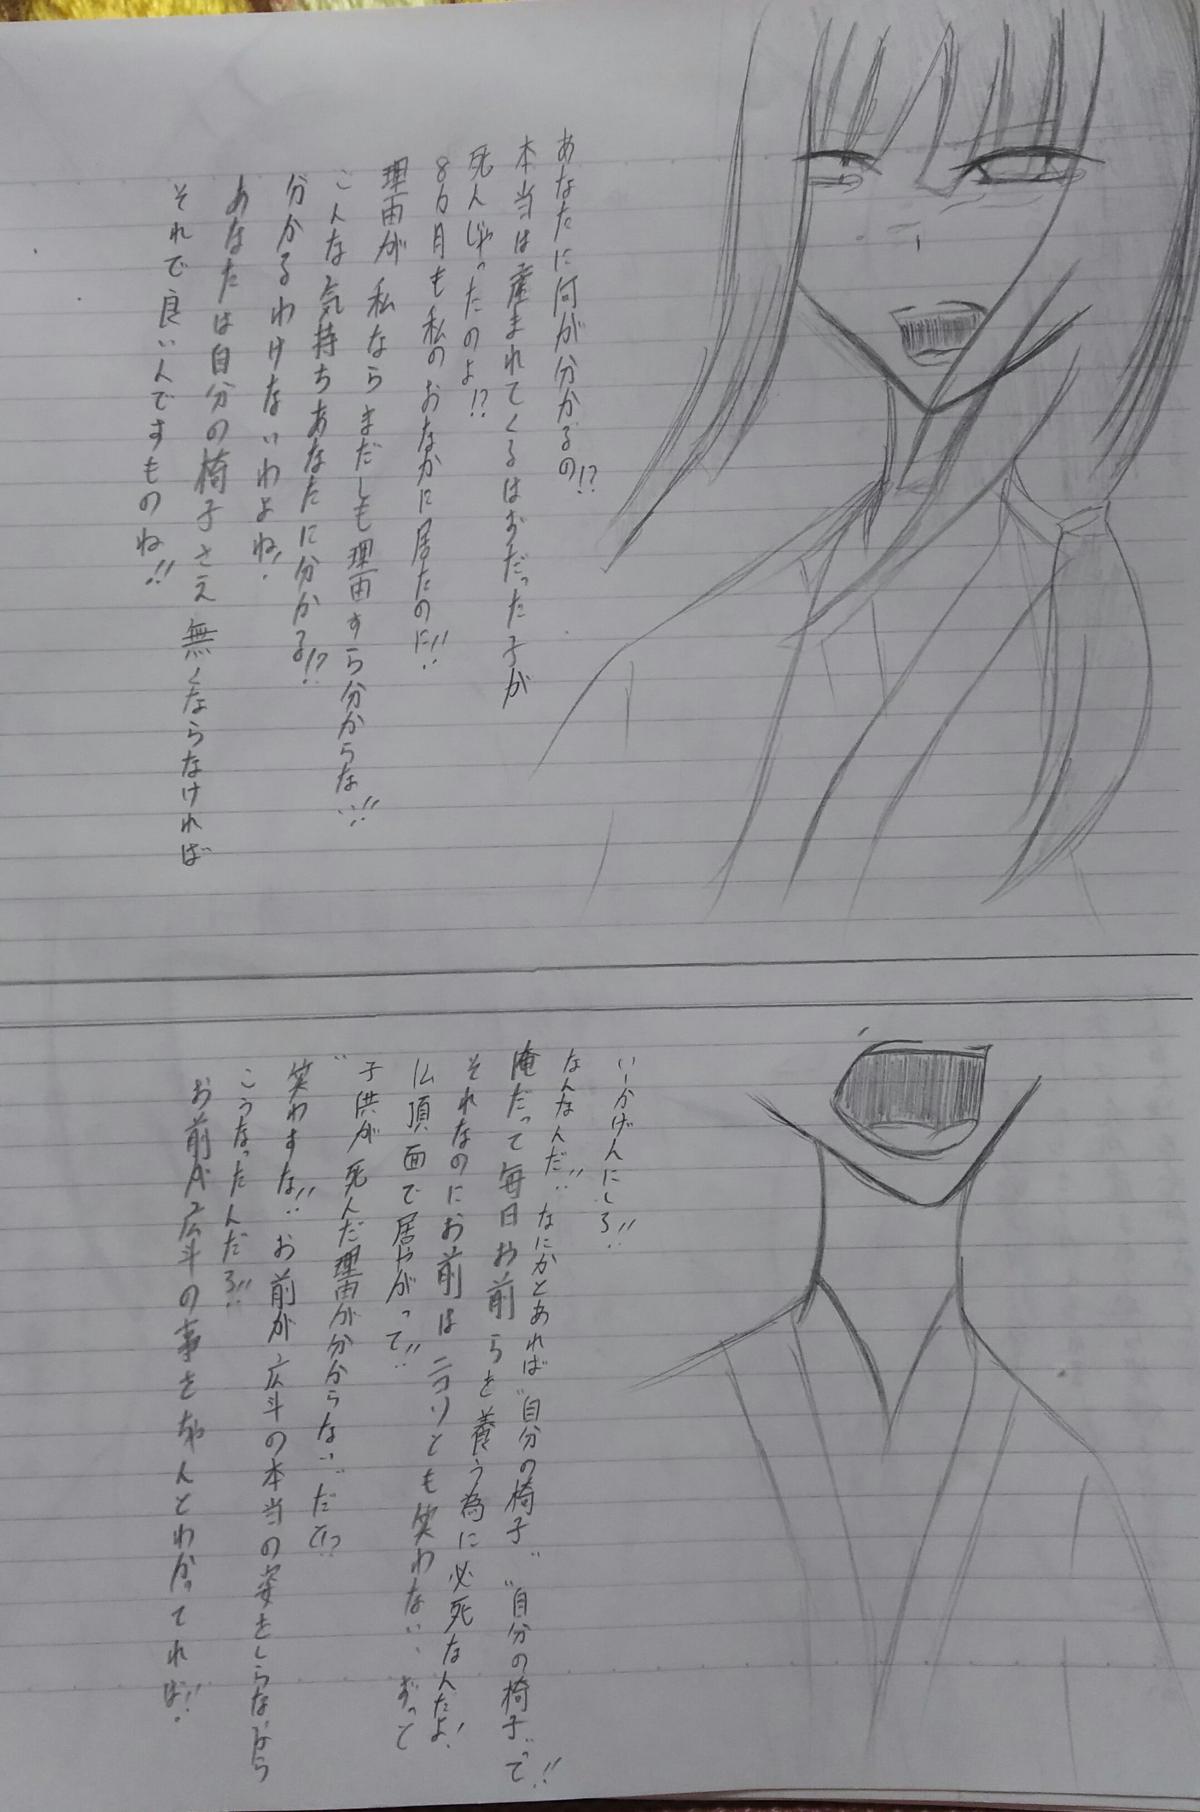 あなたに何が分かるの!?
本当は産まれてくるはずだった子が
死んじゃったのよ!?
8カ月も私のおなかに居たのに!!
理由が私ならまだしも理由すら分からない!!
こんな気持ちあなたに分かる!?
分かるわけないわよね!
あなたは自分の椅子さえ無くならなければ
それで良い人ですものね!!
いーかげんにしろ!!
なんなんだ!! なにかとあれば"自分の椅子" "自分の椅子"って!!
俺だって毎日お前らを養う為に必死なんだよ!
それなのにお前はニコリとも笑わない、ずっと
仏頂面で居やがって!!
"子供が死んだ理由が分からない"だと!?
笑わすな!! お前が広斗の本当の姿をしらないから
こうなったんだろ!!
お前が広斗の事をちゃんとわかってれば!!